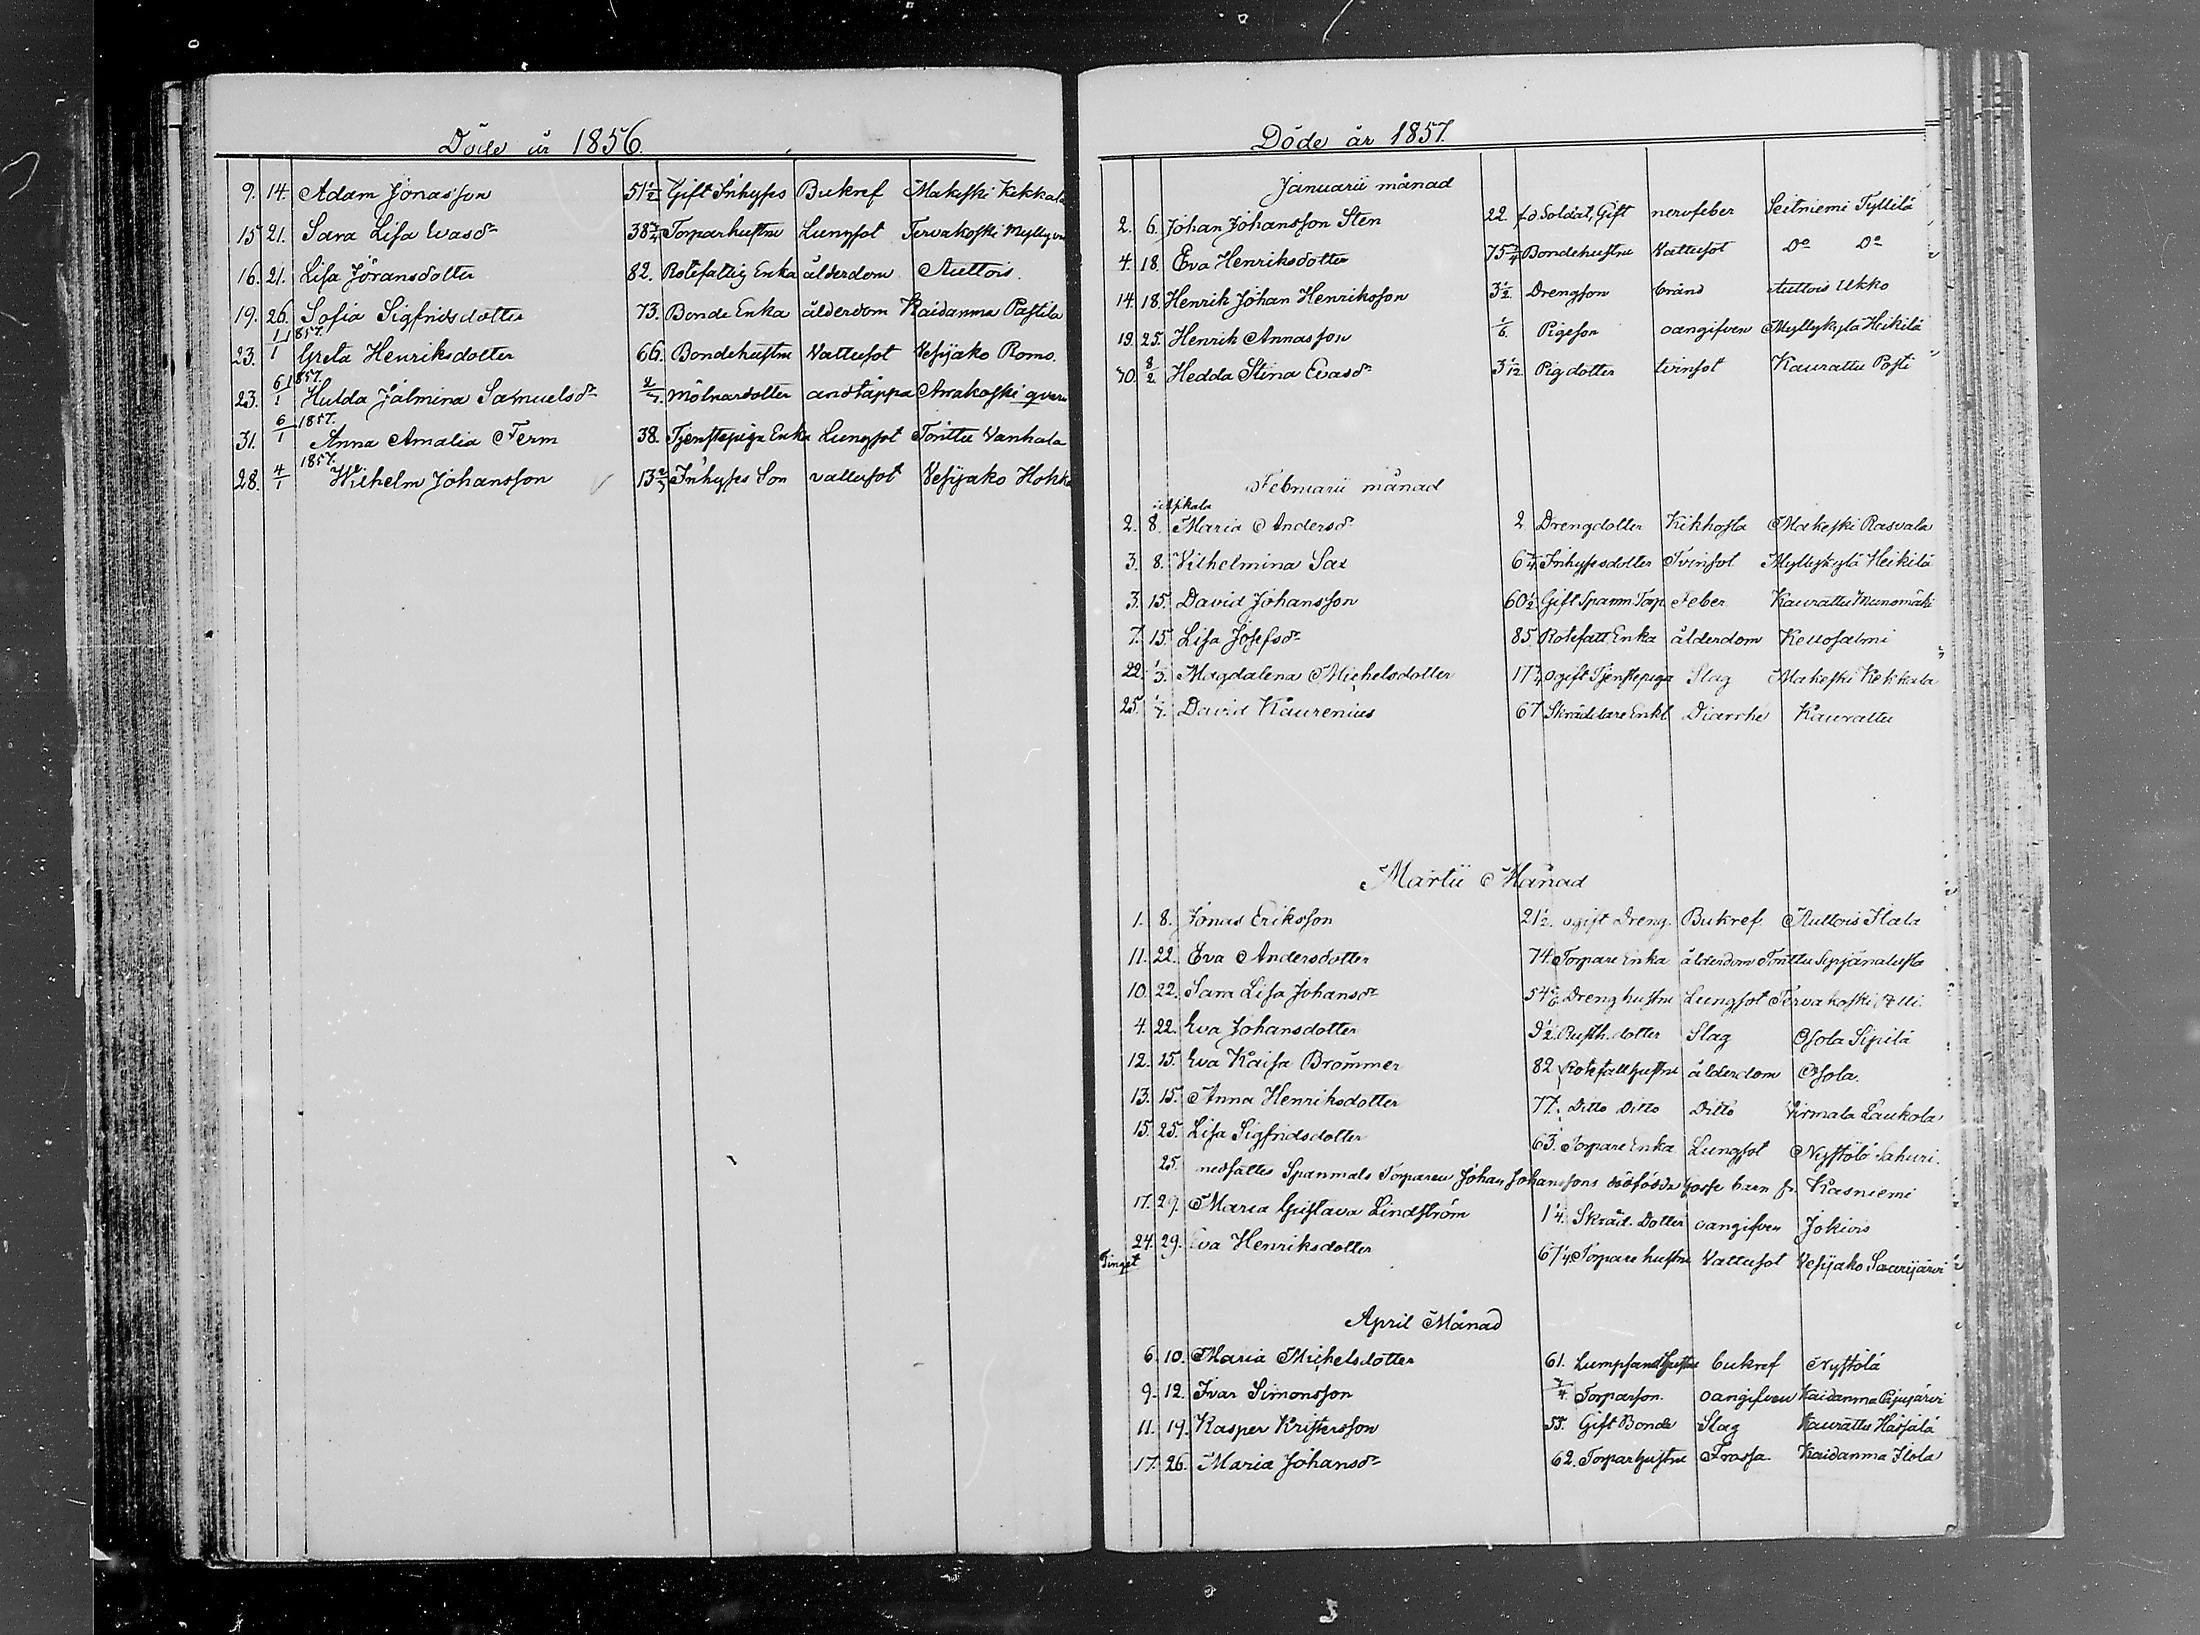 Döde år 1856.
9. 14. Adam Jonasson 51 1/2 Gift Inhyses Bukref Makeski Kekkala
15 21. Sara Lisa Evasdr 38 3/4 Torparhustru Lungsot Tervakoski
16. 21. Lisa Jöransdotter 82. Rotefattig Enka ålderdom Auttois.
19. 26. Sofia Sigfridsdotter 73. Bonde Enka ålderdom Kaidanma Pastila
23. 1/1 1857. Greta Henriksdotter 66. Bondehustru Vattusot Vesijako Romo.
23. 6/1 1857. Hulda Jalmina Samuelsdr Mölnardotter andtäppa Arrakoski qvarn
31. 6/1 1857. Anna Amalia Ferm 38. Tjenstepiga Enka Lungsot Torittu Vanhala
28. 4/1 1857. Wilhelm Johansson 13 Inhyses Son vattusot Vesijako
Döde år 1857.
Januarii månad
2. 6. Johan Johansson Sten 22. f.d. Soldat, Gift nervfeber Seitniemi Tyllilä
4. 18. Eva Henriksdotter 75 3/4 Bondehustru Vattusot Do Do
14. 18. Henrik Johan Henriksson 3 1/2 Drengson bränd Auttois Ukko
19. 25. Henrik Annasson 1/6. Pigeson oangifven Myllykylä Heikilä
30. 8/2 Hedda Stina Evasdr 3 1/12 Pigdotter tvinsot Kaurattu Posti
Februarii månad
2. 8. Maria Andersdr 2 Drengdotter Kikhosta Makeski Rasvala
3. 8. Vilhelmina Sax 6 Inhysesdotter Tvinsot Myllykylä Heikilä
3. 15. David Johansson 60 1/2 Gift Spanm Torp Feber Kaurattu Munomäki
7. 15. Lisa Josefsdr 85. Rotefatt Enka ålderdom Kellosalmi
22. 1/3. Magdalena Michelsdotter 17 ogift Tjenstepiga Slag Makeski Kekkala
25. David Kaurenius 67 Skräddare Enkl Diarrhe Kaurattu
Martii Månad
1. 8. Jonas Eriksson 21 1/2. ogift Dreng. Bukref Auttois Itala
11. 22. Eva Andersdotter 74. Torpare Enka ålderdom Torittu
10. 22. Sara Lisa Johansdr 54 Dreng hustru Lungsot Tervakoski
4. 22. Eva Johansdotter 9 1/2. Rusth. dotter Slag Osola Sipilä
12. 15. Eva Kaisa Brommer 82 Rotefatt hustru ålderdom Osola.
13. 15. Anna Henriksdotter 77. Ditto Ditto Ditto Virmala Laukola
15. 25. Lisa Sigfridsdotter 63. Torpare Enka Lungsot Nystölä Sakuri.
25. nedsattes Spanmåls Torparen Johan Johanssons dödfödda gosse barn fr. Kasniemi
17. 29. Maria Gustava Lindström 1 1/4. Skräd. Dotter oangifven Jokiois
24. 29. Eva Henriksdotter 67 1/4. Torpare hustru Vattusot Vesijako Saarijärvi
Tinget
April Månad
6. 10. Maria Michelsdotter 61. bukref Nystölä
9. 12. Ivar Simonsson 3/4. Torparson. oangifven Kaidanma
11. 19. Kasper Kristersson 55. Gift Bonde Slag Kaurattu Hassala
17. 26. Maria Johansdr 62. Torparhustru Frossa. Kaidanma Ilola